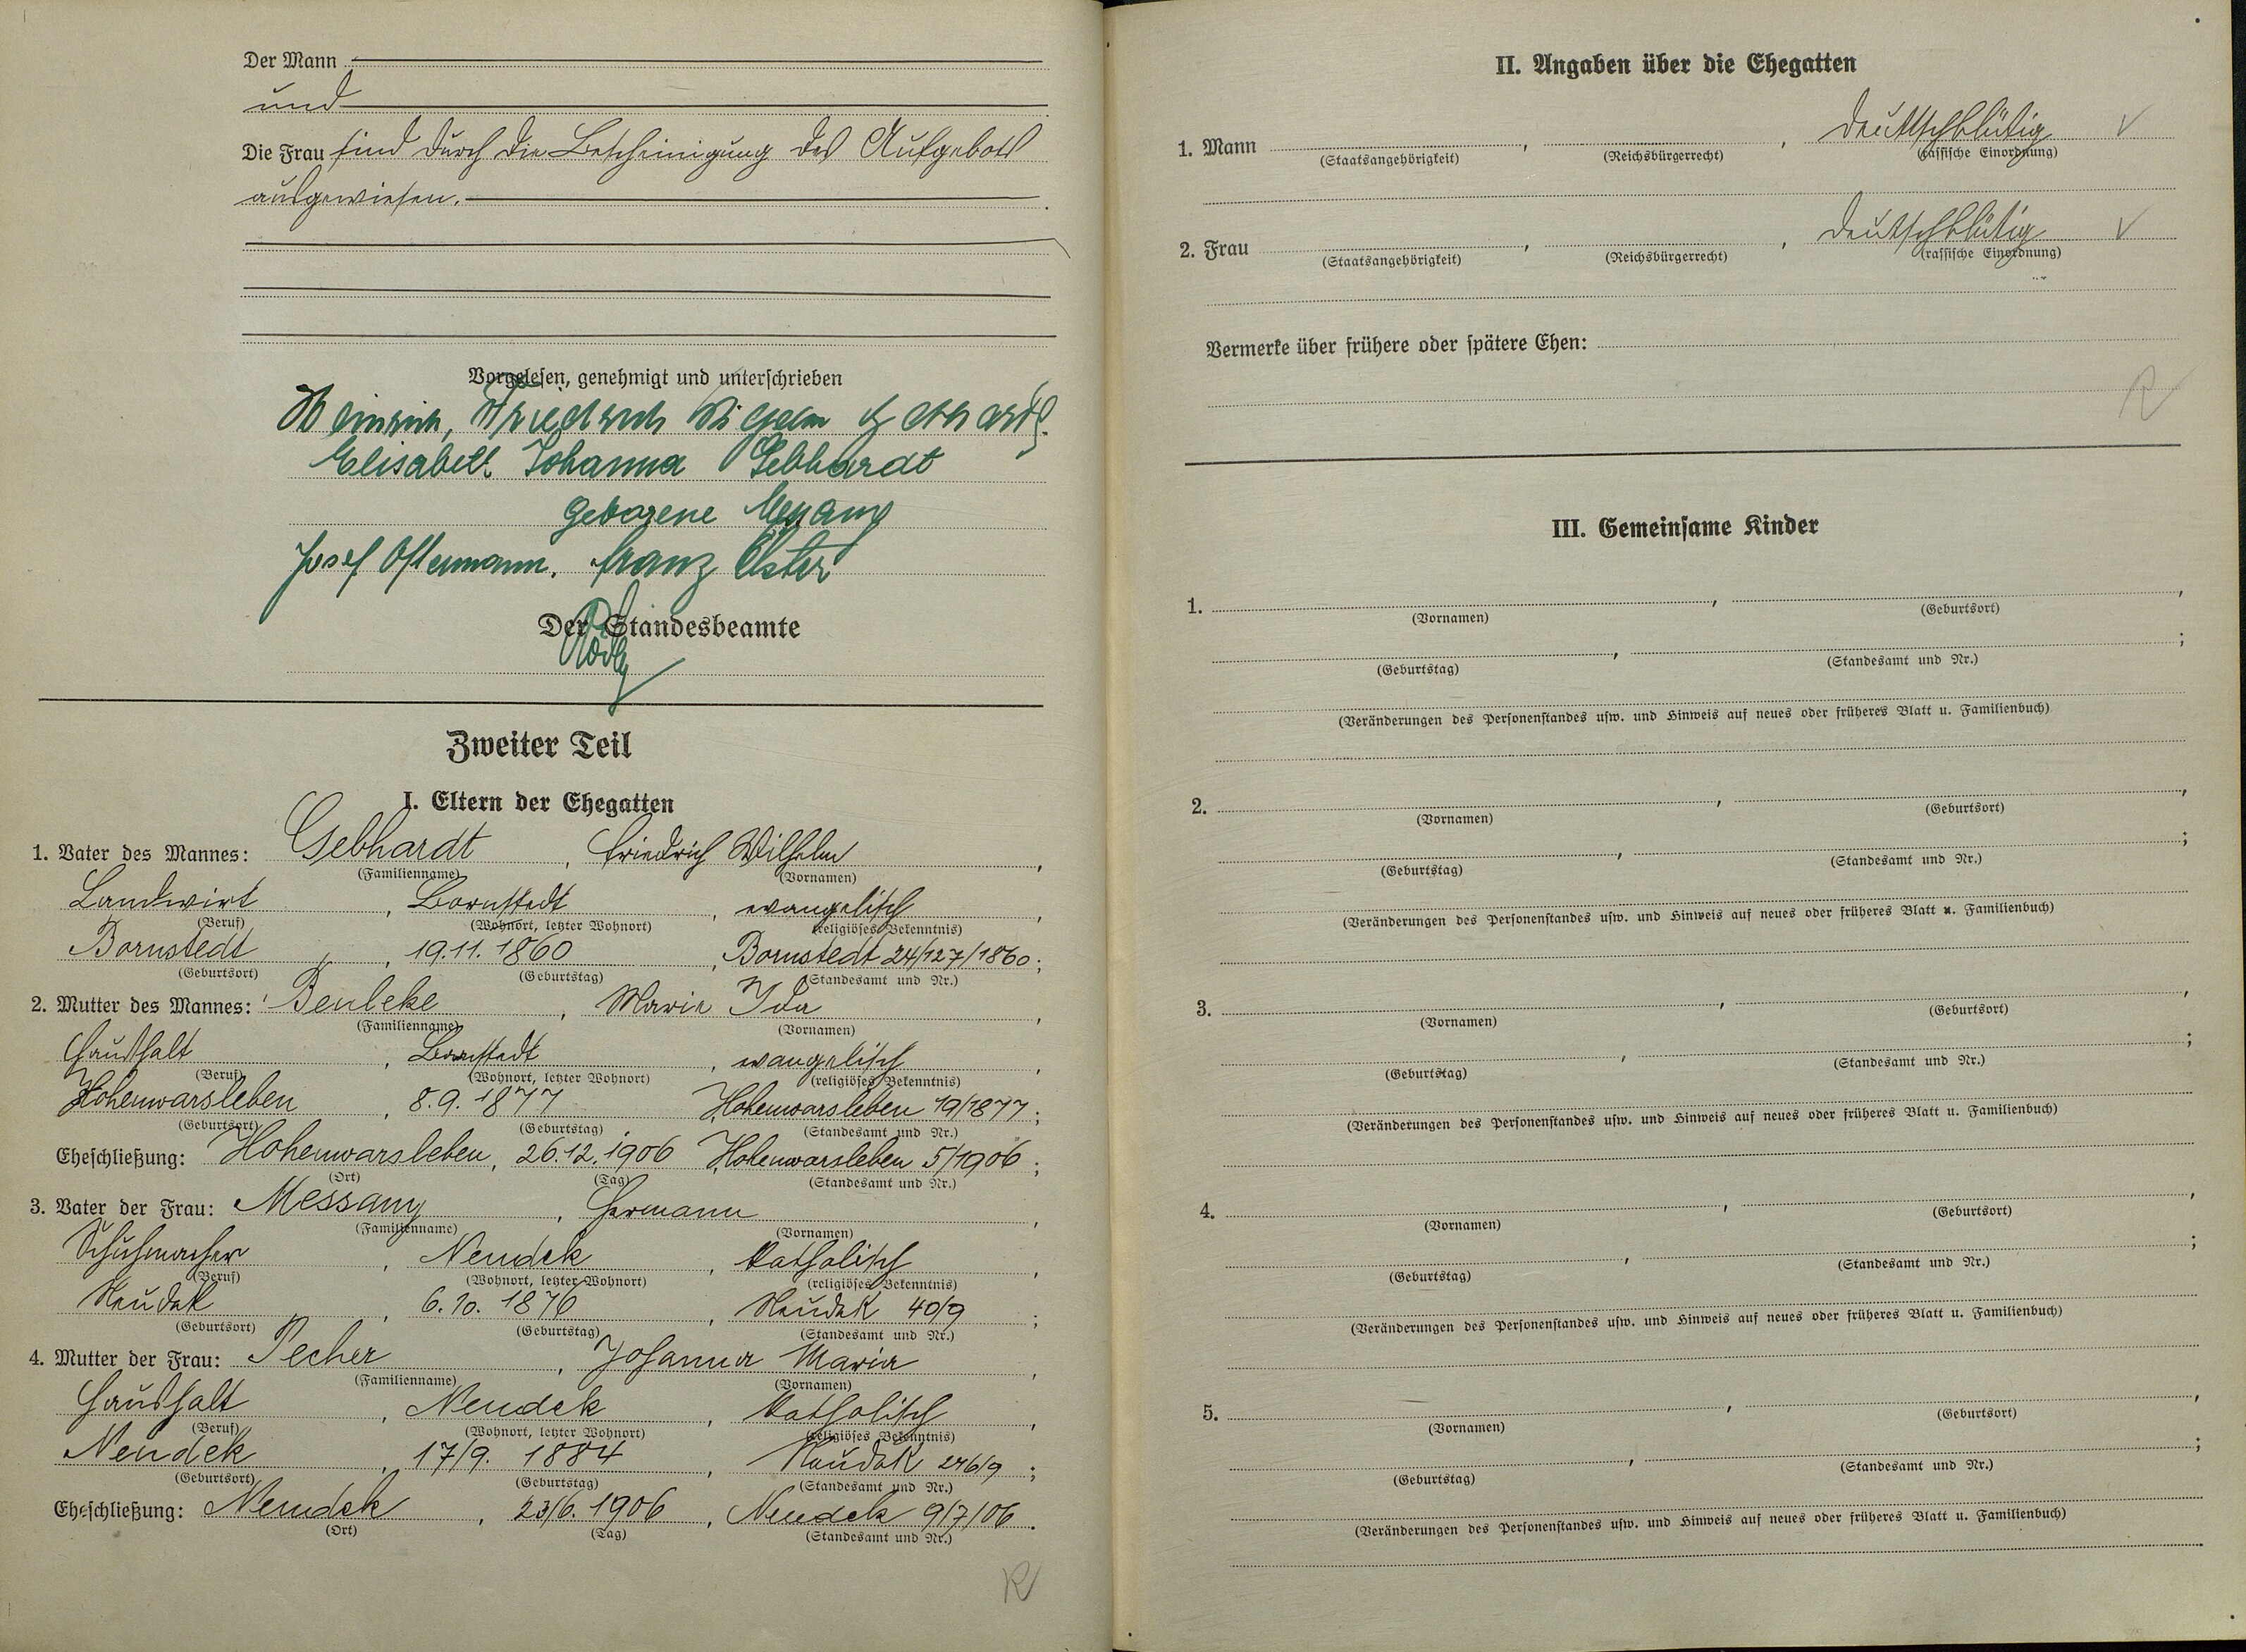 Der Mann
und
Die Frau sind durch die Bescheinigung des Aufgebots
ausgewiesen.
Vorgelesen, genehmigt und unterschrieben
Heinrich, Friedrich Gebhardt
Elisabeth Johanna Gebhardt
geborene Messany
Josef Ostermann. Franz Elster
Der Standesbeamte
Zweiter Teil
I. Eltern der Ehegatten
1. Vater des Mannes: Gebhardt, Friedrich Wilhelm,
(Familienname) (Vornamen)
Landwirt, Bornstedt, evangelisch,
(Beruf) (Wohnort, letzter Wohnort) (religiöses Bekenntnis)
Bornstedt, 19.11.1860, Bornstedt 24/127/1860;
(Geburtsort) (Geburtstag) (Standesamt und Nr.)
2. Mutter des Mannes: Benleke, Marie Ida,
(Familienname) (Vornamen)
Haushalt, Bornstedt, evangelisch,
(Beruf) (Wohnort, letzter Wohnort) (religiöses Bekenntnis)
Hohenwarsleben, 8.9.1877 Hohenwarsleben 19/1877;
(Geburtsort) (Geburtstag) (Standesamt und Nr.)
Eheschließung: Hohenwarsleben, 26.12.1906 Hohenwarsleben 5/1906;
(Ort) (Tag) (Standesamt und Nr.)
3. Vater der Frau: Messany, Hermann,
(Familienname) (Vornamen)
Schuhmacher, Neudek, katholisch,
(Beruf) (Wohnort, letzter Wohnort) (religiöses Bekenntnis)
Neudek, 6.10.1876, Neudek 40/9;
(Geburtsort) (Geburtstag) (Standesamt und Nr.)
4. Mutter der Frau: Pecher, Johanna Maria,
(Familienname) (Vornamen)
Haushalt, Neudek, katholisch,
(Beruf) (Wohnort, letzter Wohnort) (religiöses Bekenntnis)
Neudek, 17/9. 1884, Neudek 246/9;
(Geburtsort) (Geburtstag) (Standesamt und Nr.)
Eheschließung: Neudek, 23/6. 1906, Neudek 9/7/06.
(Ort) (Tag) (Standesamt und Nr.)
R
II. Angaben über die Ehegatten
1. Mann , , deutschblütig
(Staatsangehörigkeit) (Reichsbürgerrecht) (rassische Einordnung)
2. Frau , , deutschblütig
(Staatsangehörigkeit) (Reichsbürgerrecht) (rassische Einordnung)
Vermerke über frühere oder spätere Ehen:
R
III. Gemeinsame Kinder
1. , ,
(Vornamen) (Geburtsort)
, ;
(Geburtstag) (Standesamt und Nr.)
(Veränderungen des Personenstandes usw. und Hinweis auf neues oder früheres Blatt u. Familienbuch)
2. , ,
(Vornamen) (Geburtsort)
, ;
(Geburtstag) (Standesamt und Nr.)
(Veränderungen des Personenstandes usw. und Hinweis auf neues oder früheres Blatt u. Familienbuch)
3. , ,
(Vornamen) (Geburtsort)
, ;
(Geburtstag) (Standesamt und Nr.)
(Veränderungen des Personenstandes usw. und Hinweis auf neues oder früheres Blatt u. Familienbuch)
4. , ,
(Vornamen) (Geburtsort)
, ;
(Geburtstag) (Standesamt und Nr.)
(Veränderungen des Personenstandes usw. und Hinweis auf neues oder früheres Blatt u. Familienbuch)
5. , ,
(Vornamen) (Geburtsort)
, ;
(Geburtstag) (Standesamt und Nr.)
(Veränderungen des Personenstandes usw. und Hinweis auf neues oder früheres Blatt u. Familienbuch)